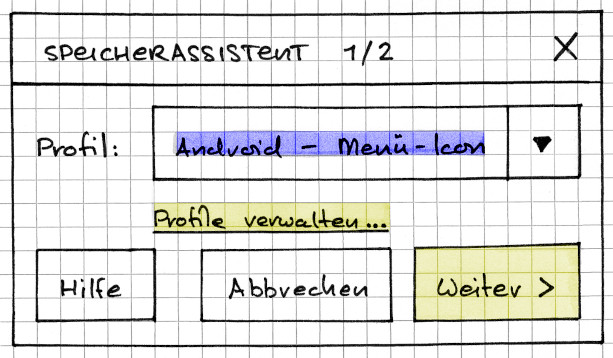 SPEICHERASSISTENT 1/2 X
Profil: Android - Menü-Icon ▼
Profile verwalten...
Hilfe Abbrechen Weiter >